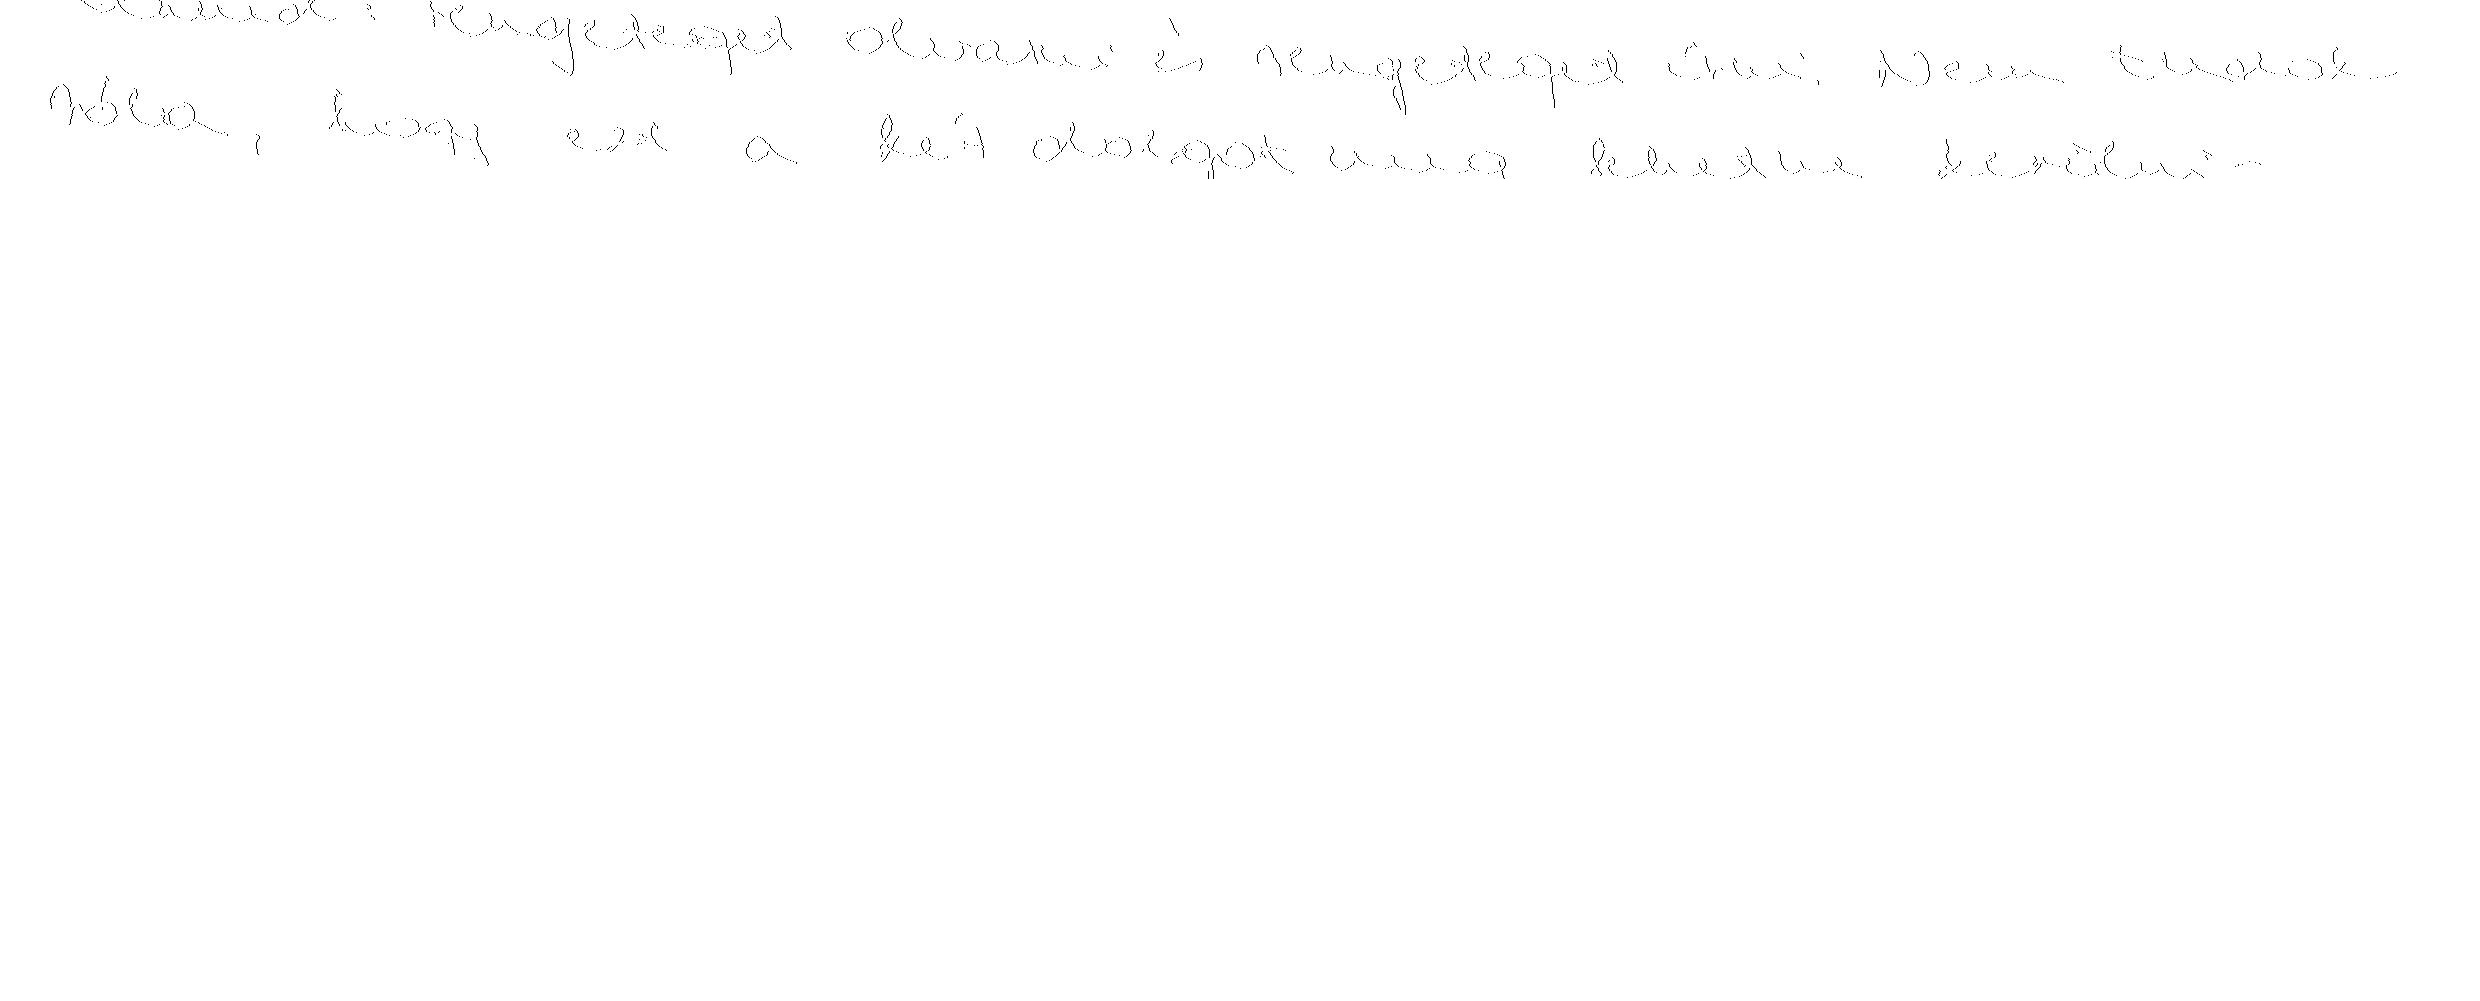 rengeteget olvasni és rengeteget írni. Nem tudok
róla, hogy ezt a két dolgot lehetne kerülni -